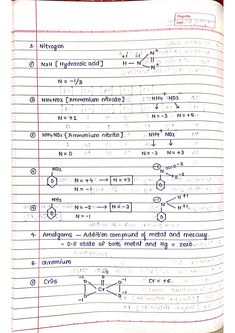 Page No.
Date
3. Nitrogen
① N3H [Hydrazoic acid]
+1 -1
H – N
N
N
N = -1/3
② NH4NO3 [Ammonium nitrate]
NH4+ NO3-
N = +1
N = -3 N = +5
③ NH4NO2 [Ammonium nitrite]
NH4+ NO2-
N = 0
N = -3 N = +3
④ NO2
N = +4 → N = +3
N = -1
⑤ NH2
N = -2 → N = -3
N = -1
4. Amalgams – Addition compound of metal and mercury
- O.S state of both metal and Hg = zero.
5. Chromium
① CrO5
Cr = +6